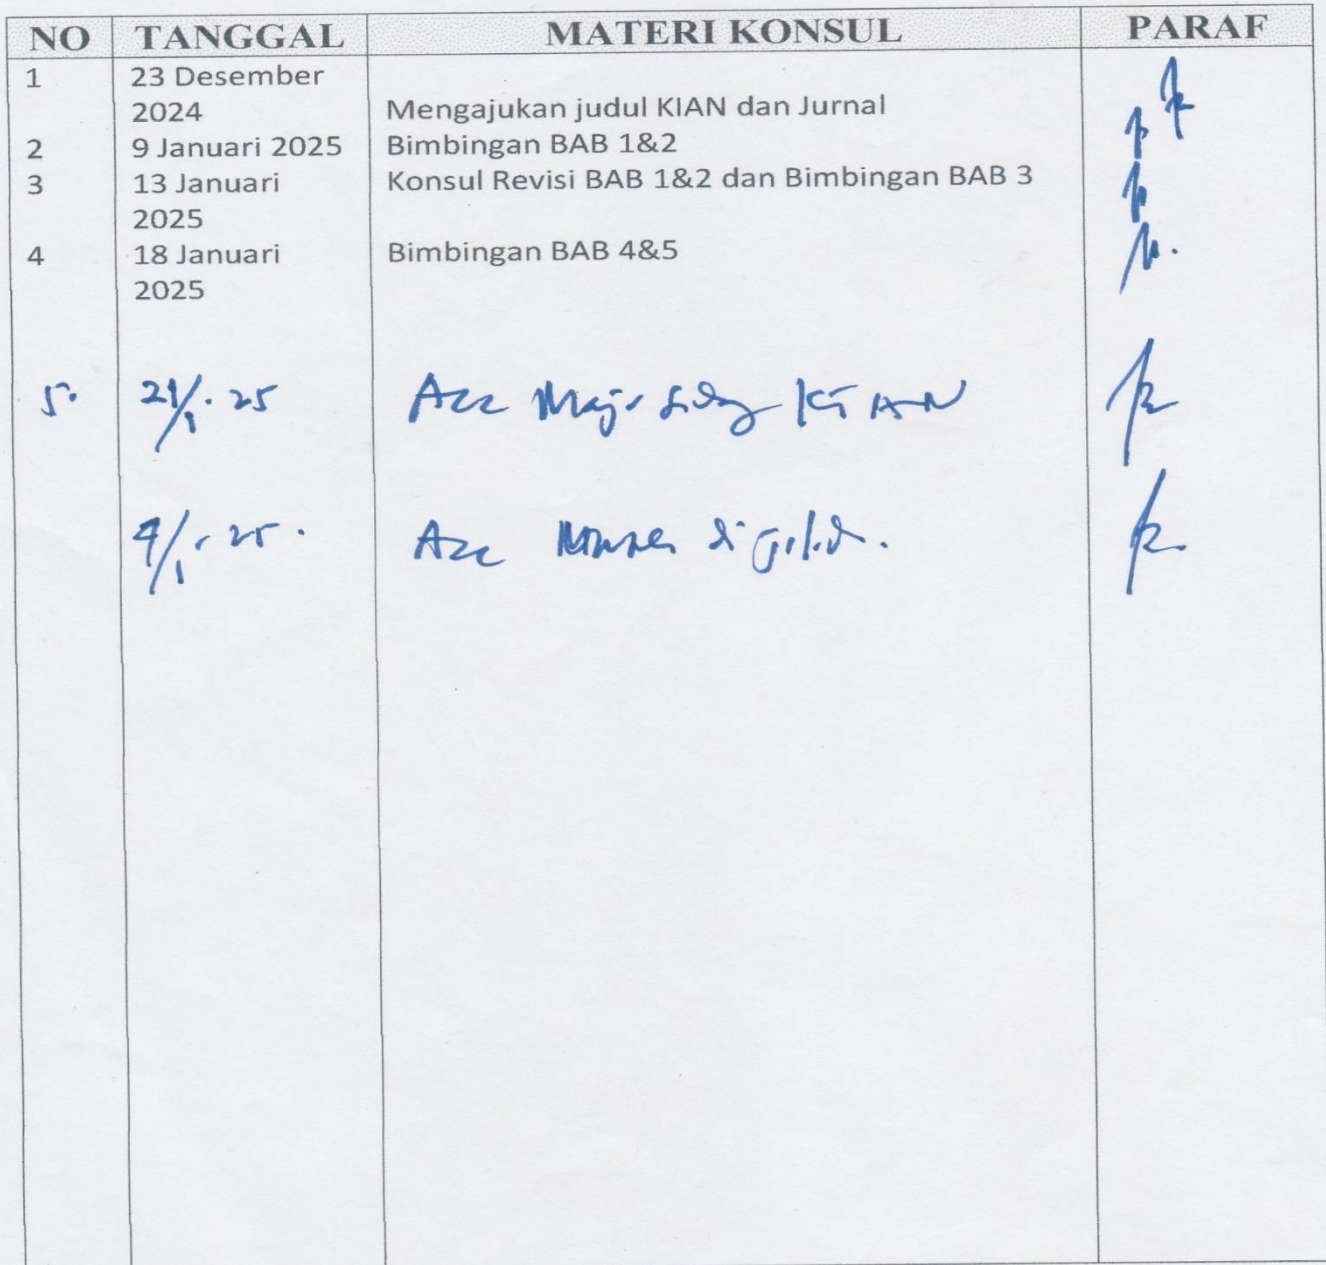 NO TANGGAL MATERI KONSUL PARAF
1 23 Desember
2024 Mengajukan judul KIAN dan Jurnal
2 9 Januari 2025 Bimbingan BAB 1&2
3 13 Januari Konsul Revisi BAB 1&2 dan Bimbingan BAB 3
2025
4 18 Januari Bimbingan BAB 4&5
2025
5. 21/1-25 Acc Maju sidang KIAN
Acc